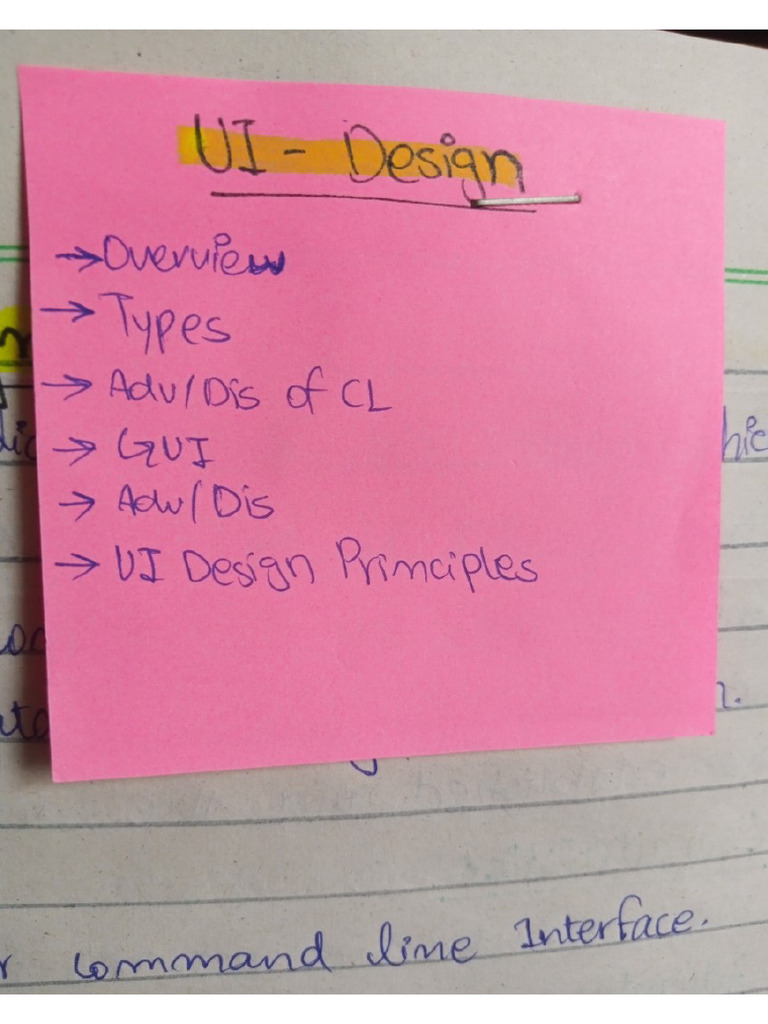 UI - Design
→ Overview
→ Types
→ Adv/Dis of CL
→ GUI
→ Adv/Dis
→ UI Design Principles
command line Interface.